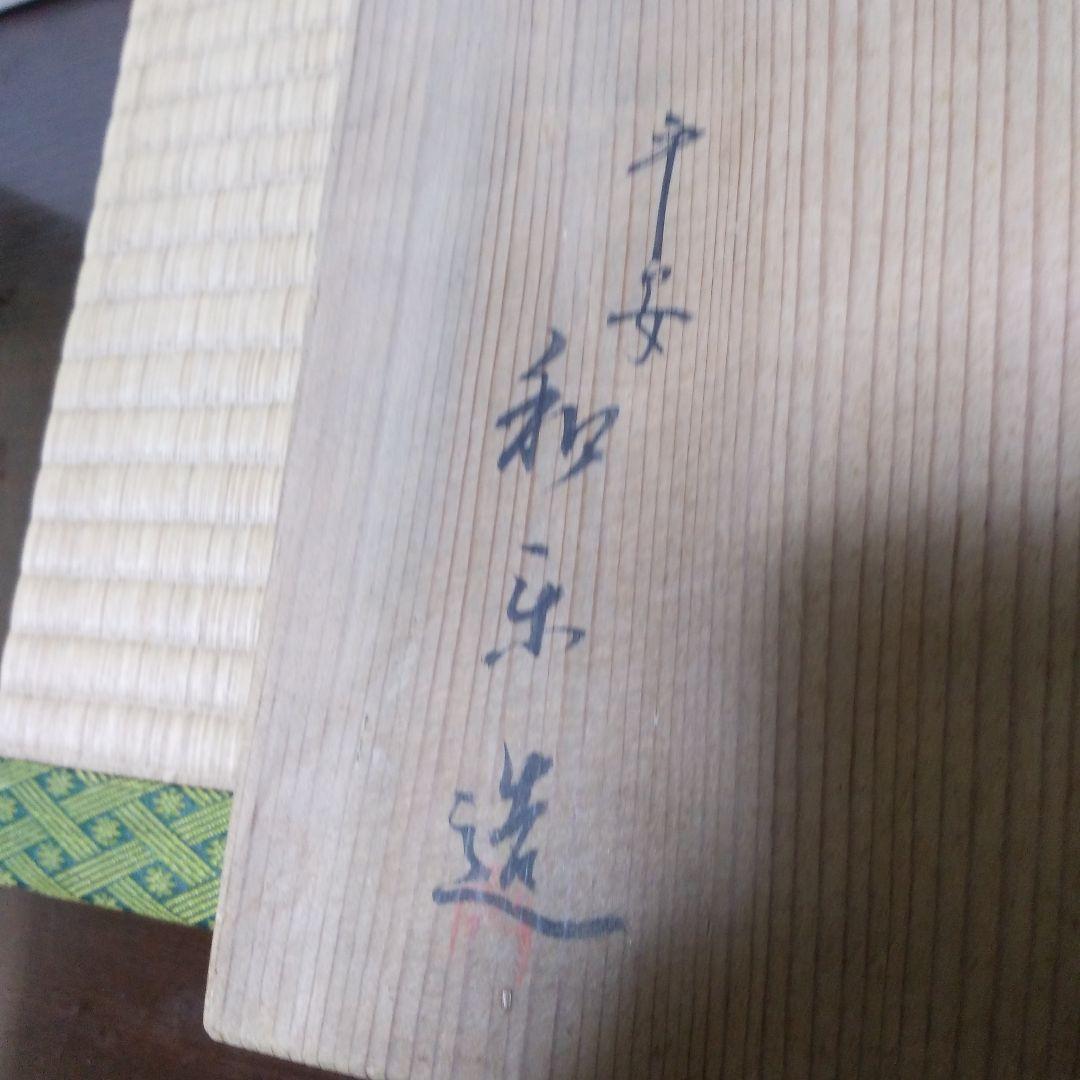 平安
和楽造